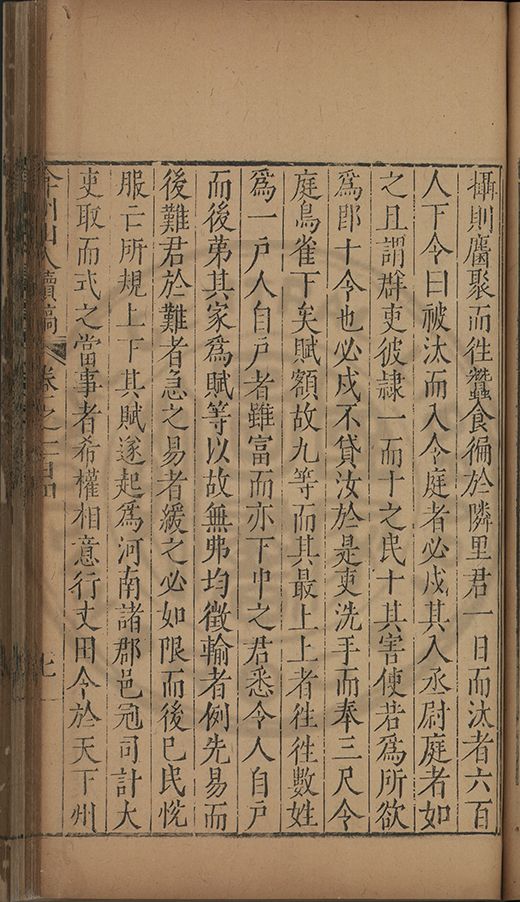 攝則腐聚而徃蠶食徧於隣里君一日而汰者六百
人下令曰被汰而入令庭者必戍其入丞尉庭者如
之且謂羣吏彼隷一而十之民十其害使若爲所欲
爲郎十令也必戍不貸汝於是吏洗手而奉三尺令
庭鳥雀下矣賦額故九等而其最上上者徃徃數姓
爲一戸人自戸者雖富而亦下中之君悉令人自戸
而後苐其家爲賦等以故無弗均徵輸者例先易而
後難君於難者急之易者緩之必如限而後已民恱
服亡所規上下其賦遂起爲河南諸郡邑冠司計大
吏取而式之當事者希權相意行丈田令於天下州
弇州山人續稿 卷之一百四 七